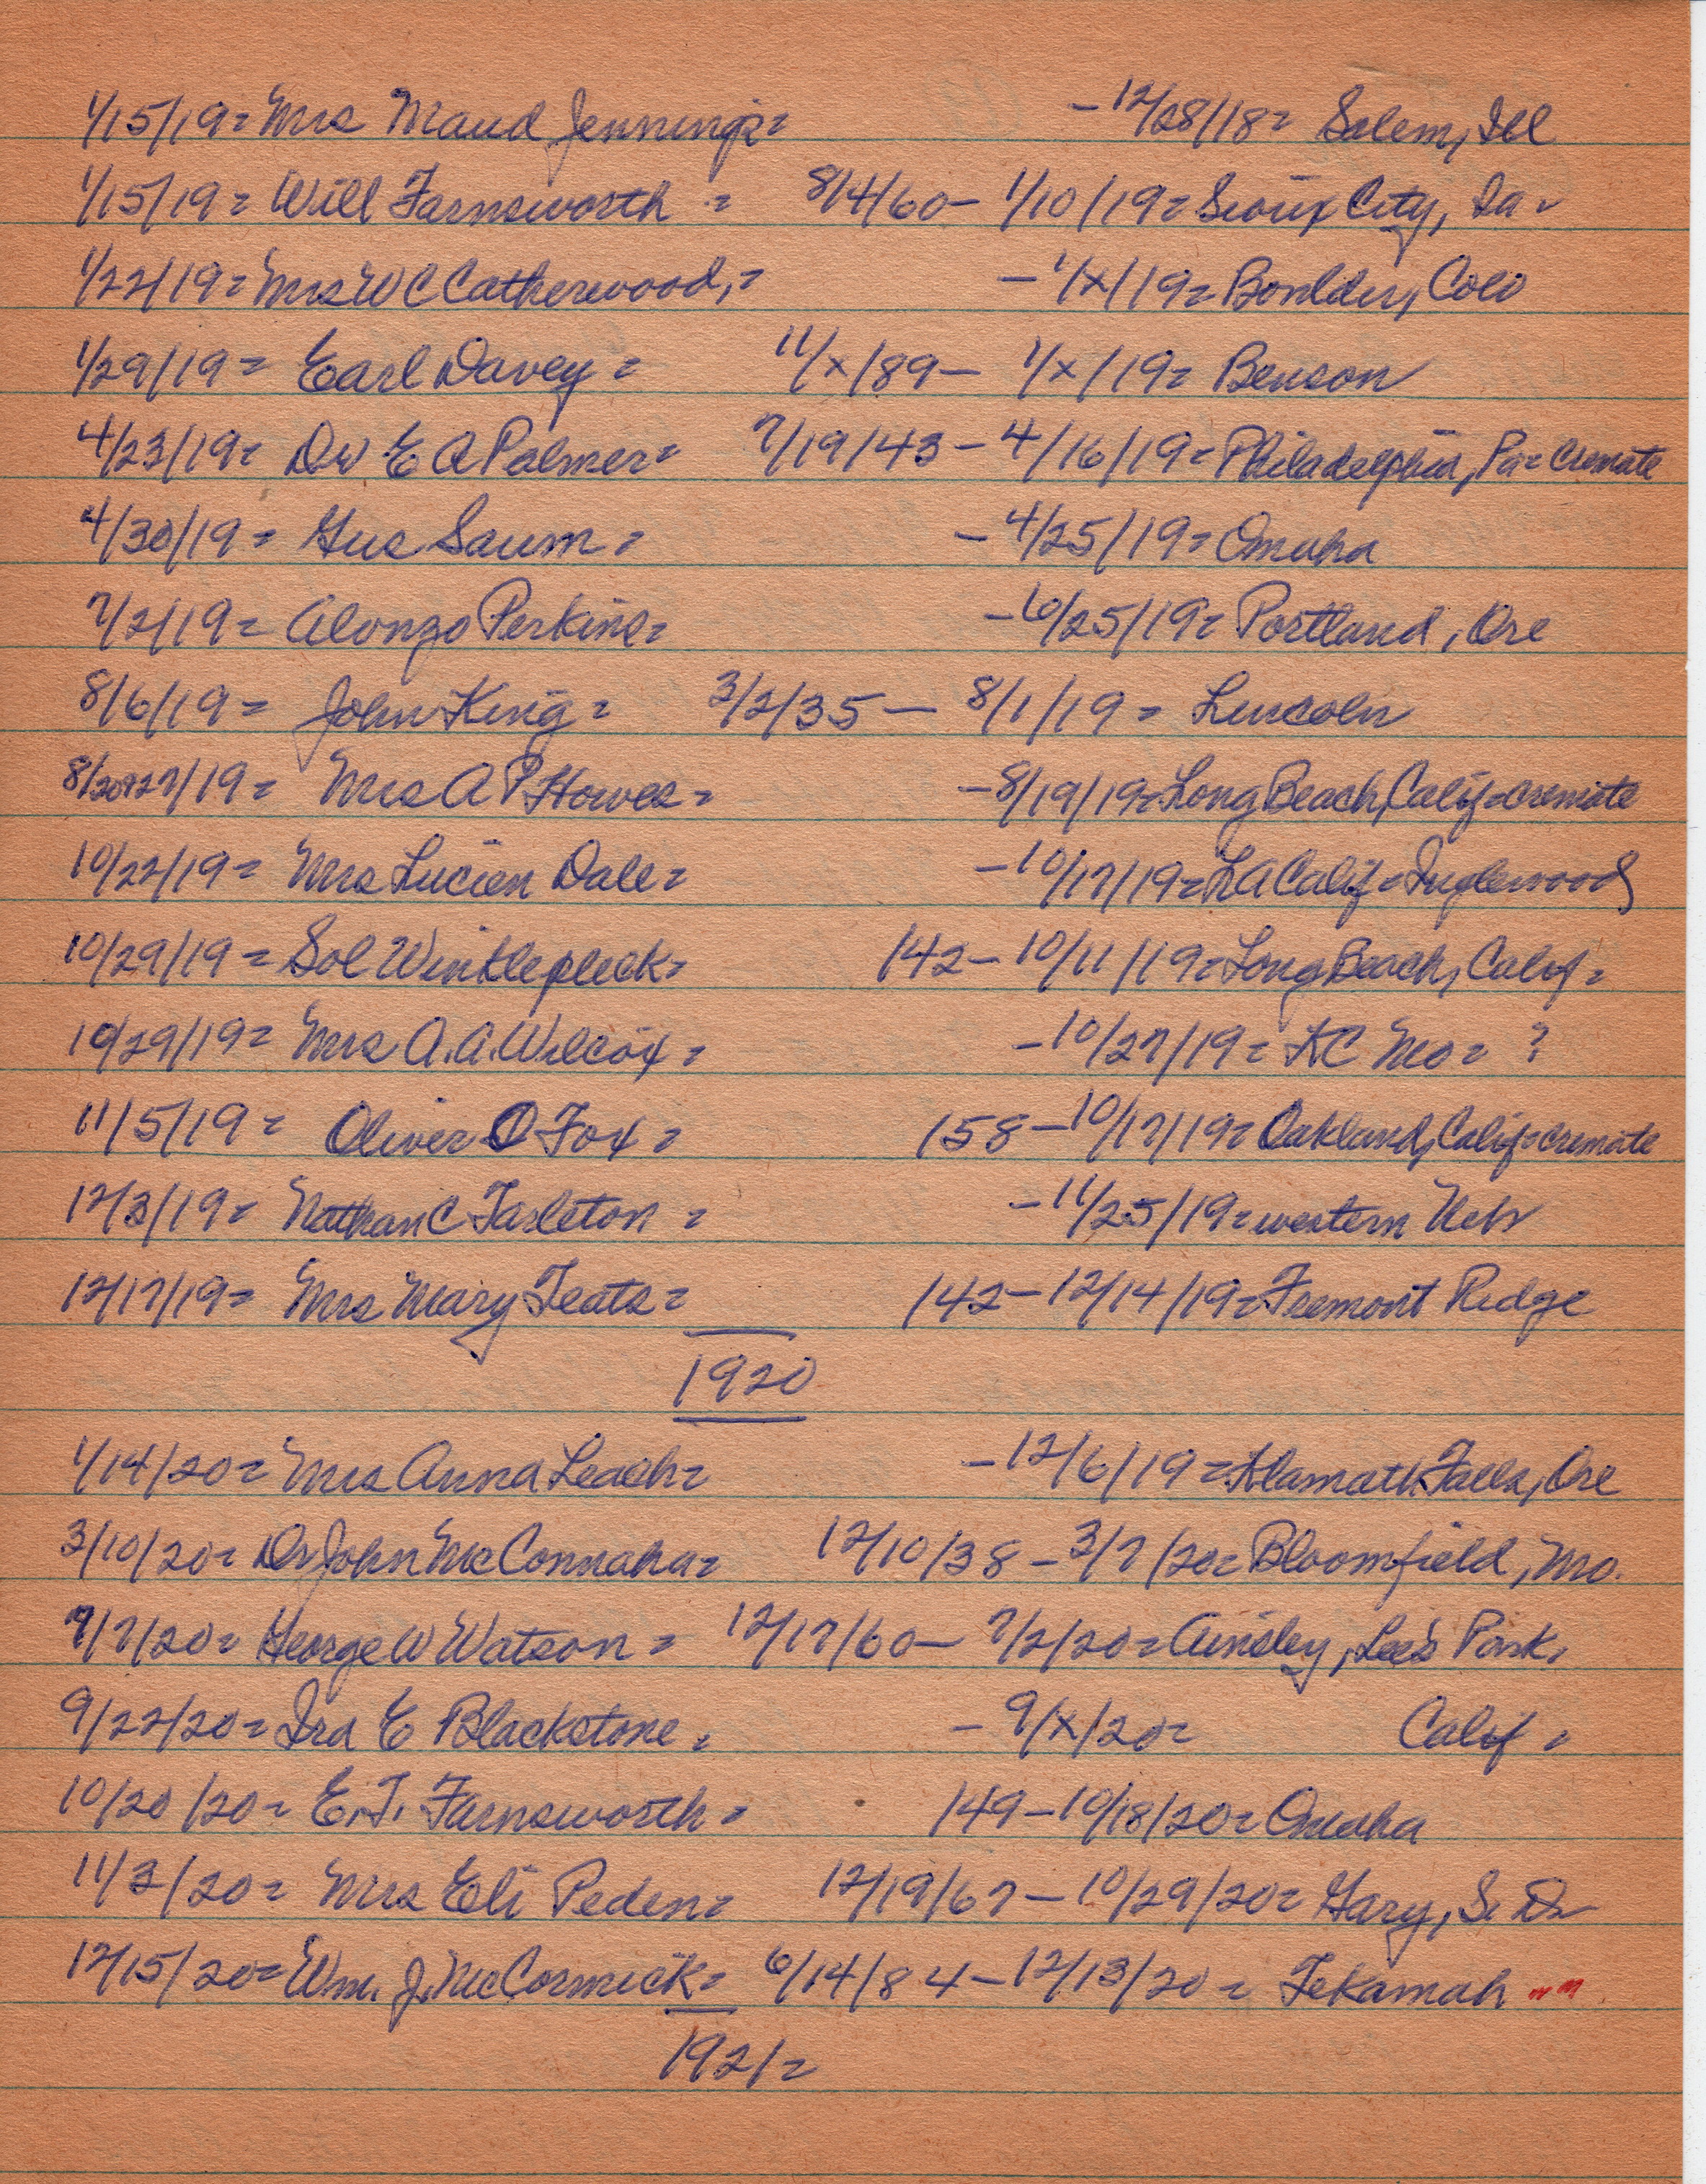 1/15/19= Mrs Maud Jennings= -12/28/18= Salem, Ill
1/15/19= Will Farnsworth = 8/4/60- 1/10/19= Sioux City, Ia-
1/22/19= Mrs W C Catherwood,= -1/x/19= Boulder, Colo
1/29/19= Earl Davey= 11/x/89- 1/x/19= Benson
4/23/19= Dr E A Palmer= 7/19/43- 4/16/19= Philadelphia, Pa= cremate
4/30/19= Gus Saum= -4/25/19= Omaha
7/2/19= Alonzo Perkins= -6/25/19= Portland, Ore
8/6/19= John King= 3/2/35- 8/1/19= Lincoln
8/20&27/19= Mrs A P Howes= -8/19/19= Long Beach, Calif= cremate
10/22/19= Mrs Lucien Dale= -10/17/19= LA Calif= Inglewood
10/29/19= Sol Winklepleck= 142-10/11/19= Long Beach, Calif=
10/29/19= Mrs A.A. Wilcox= -10/27/19= KC Mo= ?
11/5/19= Oliver O Fox= 158-10/17/19= Oakland, Calif= cremate
12/3/19= Nathan C Tarleton = -11/25/19= western Neb
12/17/19= Mrs Mary Teats= 142-12/14/19= Fremont Ridge
1920
1/14/20= Mrs Anna Leach= -12/6/19= Klamath Falls, Ore
3/10/20= Dr John McConnaha= 12/10/38-3/7/20= Bloomfield, Mo.
7/7/20= George W Watson= 12/17/60- 7/2/20= Ainsley, Lee's Park,
9/22/20= Ira E Blackstone= -9/x/20= Calif=
10/20/20= E.T. Farnsworth= 149-10/18/20= Omaha
11/3/20= Mrs Eli Peden= 12/19/67-10/29/20= Gary, S. D
12/15/20= Wm. J. McCormick= 6/14/84-12/13/20= Tekamah
1921=